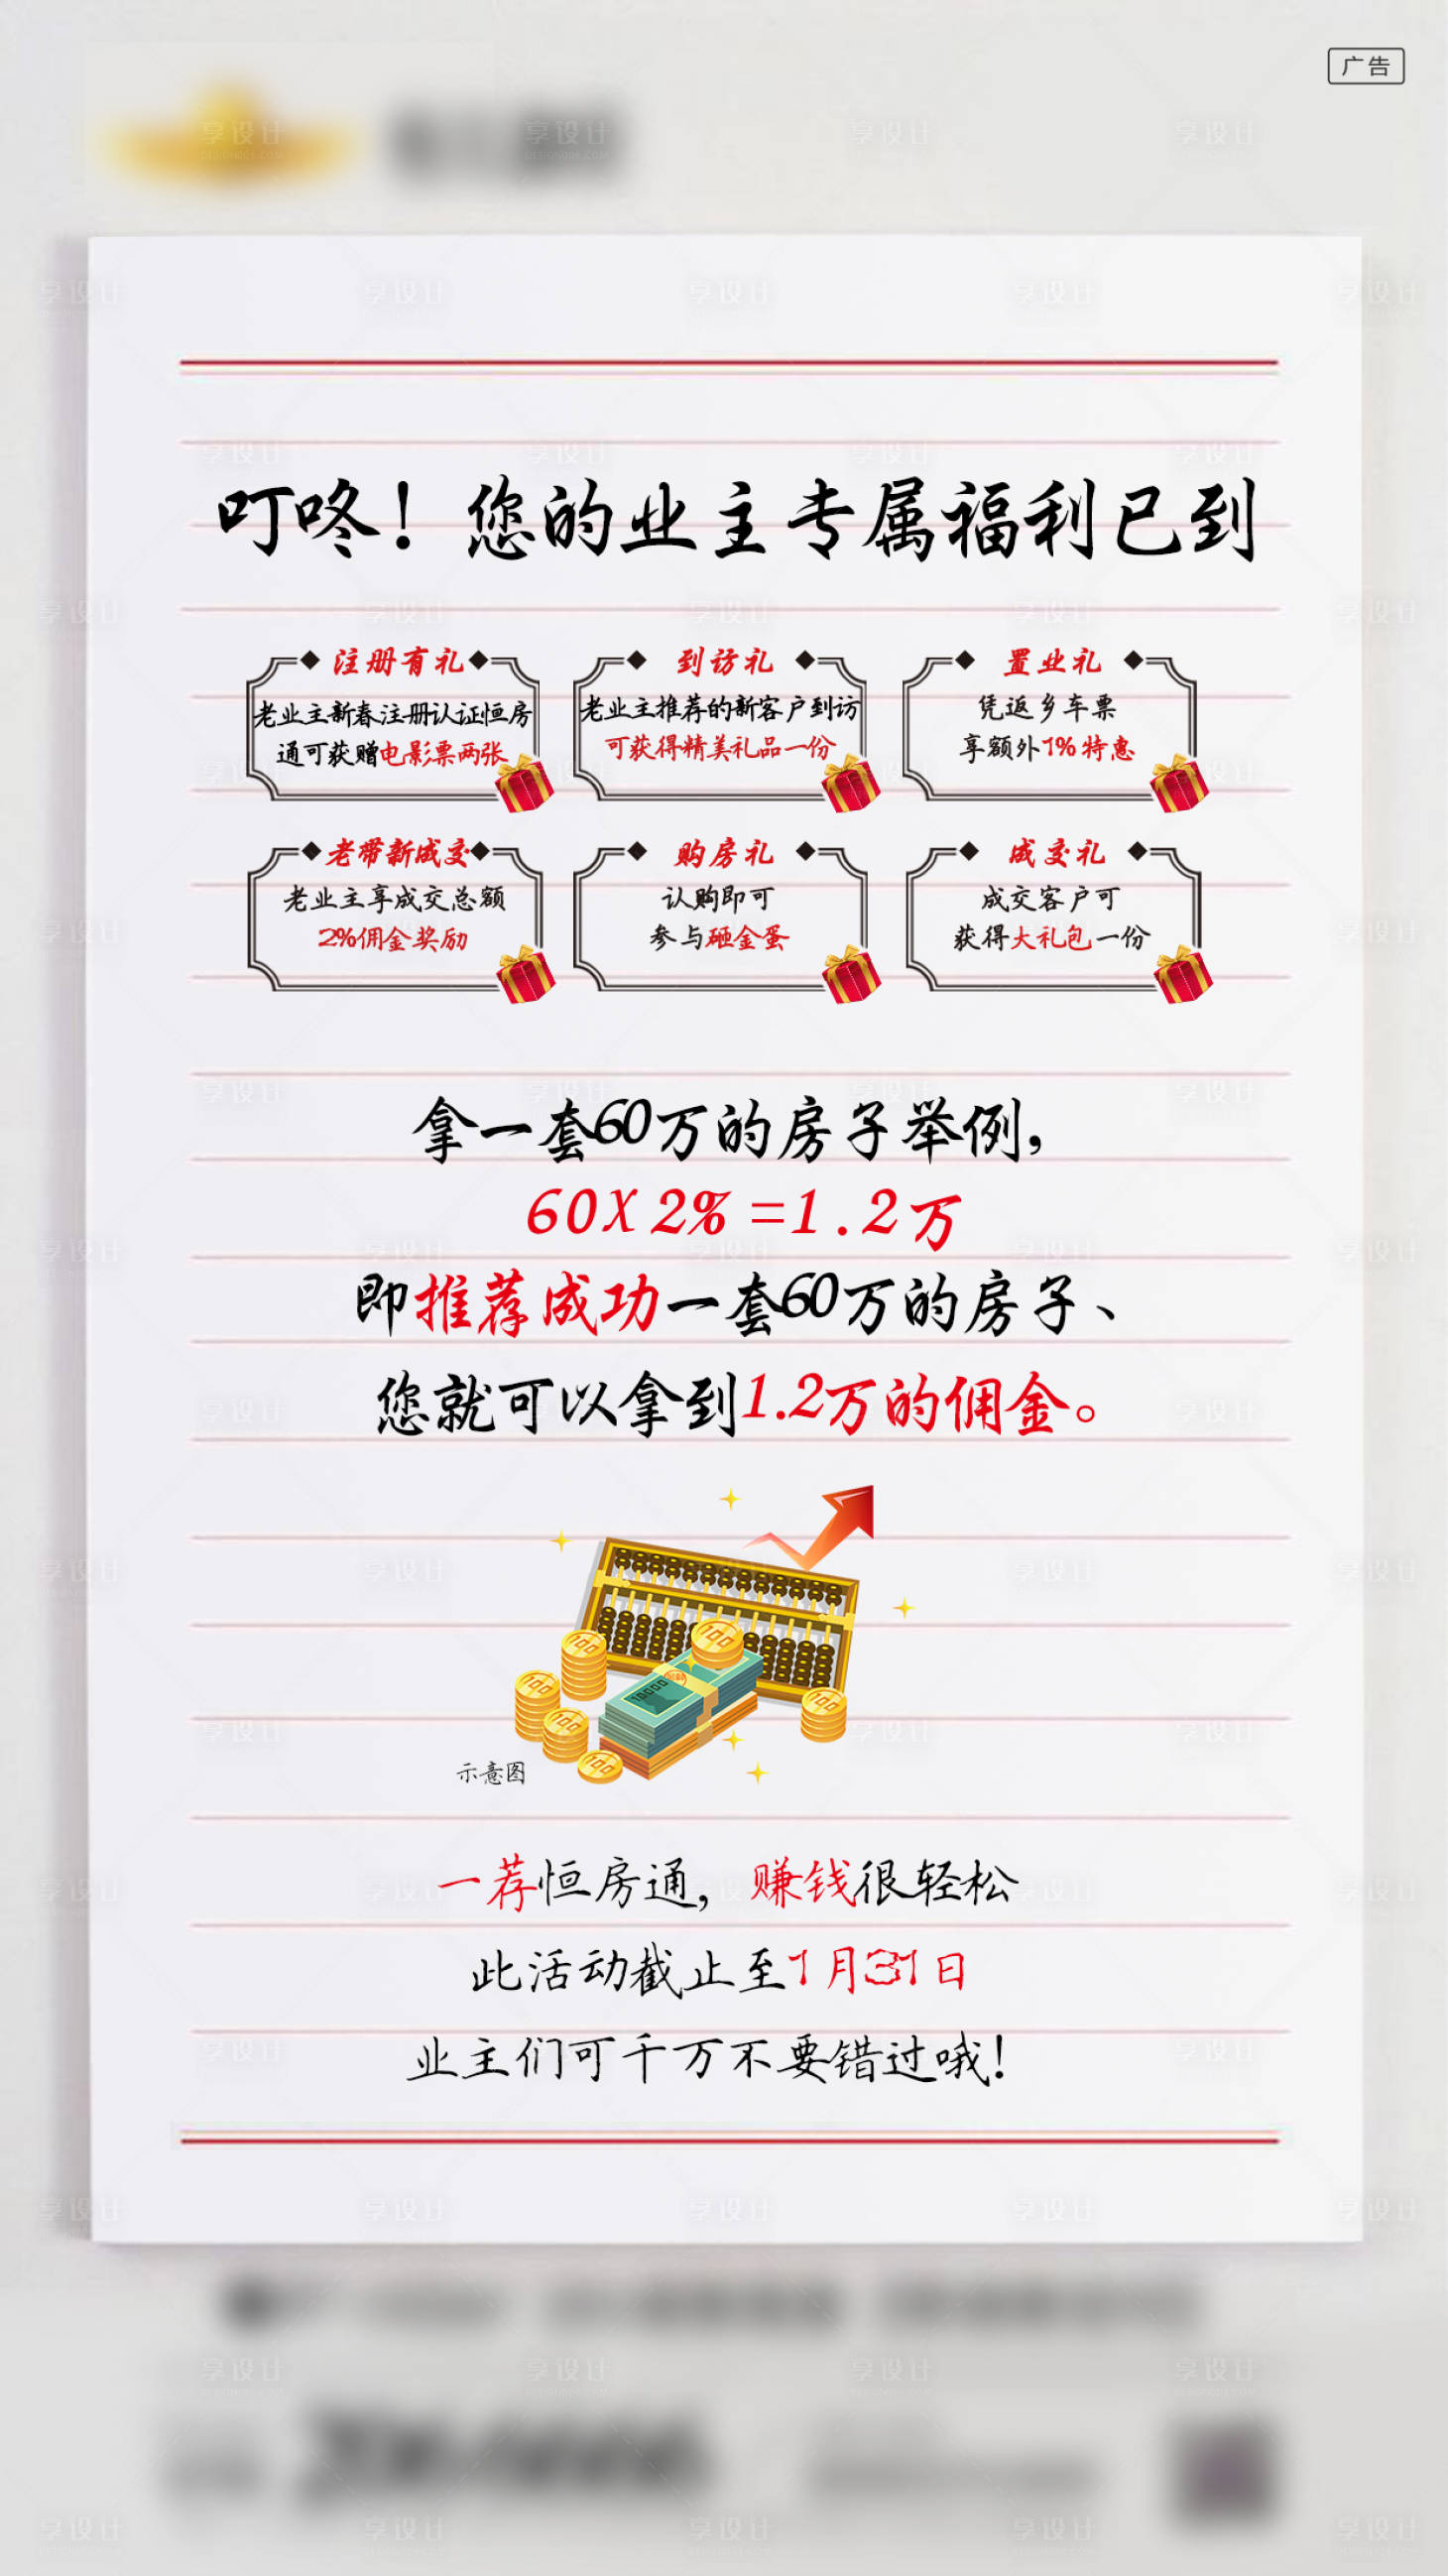 广告
叮咚！您的业主专属福利已到
注册有礼
老业主新春注册认证恒房
通可获赠电影票两张
到访礼
老业主推荐的新客户到访
可获得精美礼品一份
置业礼
凭返乡车票
享额外1%特惠
老带新成交
老业主享成交总额
2%佣金奖励
购房礼
认购即可
参与砸金蛋
成交礼
成交客户可
获得大礼包一份
拿一套60万的房子举例，
60X2%=1.2万
即推荐成功一套60万的房子、
您就可以拿到1.2万的佣金。
100
100
100
100
100
100
10000
示意图
一荐恒房通，赚钱很轻松
此活动截止至1月31日
业主们可千万不要错过哦！
享设计